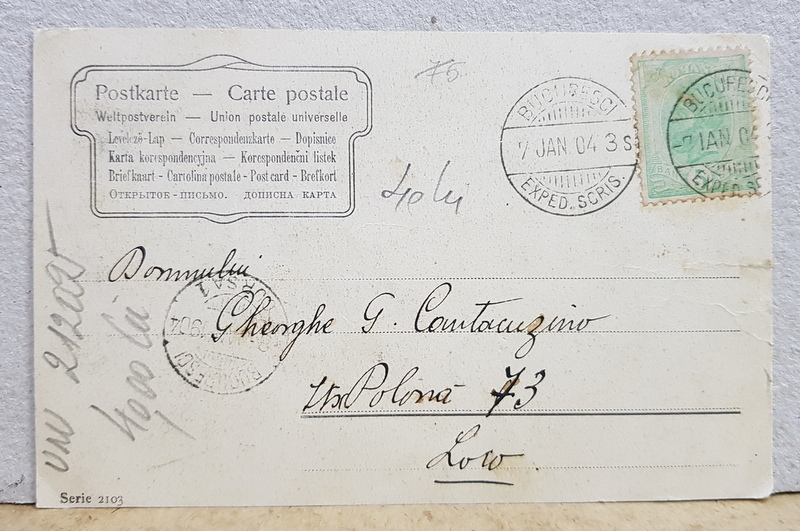 Postkarte — Carte postale
Weltpostverein — Union postale universelle
Levelező-Lap — Correspondenzkarte — Dopisnice
Karta korespondencyjna — Korespondenční listek
Briefkaart - Cartolina postale - Post card - Brefkort
ОТКРЫТОЕ - ПИСЬМО. ДОПИСНА КАРТА
75
BUCURESCI
7 JAN 04 3 S
EXPED. SCRIS.
BUCURESC
-7 IAN 04
EXPED. S
40 lei
Domnului
Gheorghe G. Cantacuzino
Str Polonă 73
Loco
BUCURESCI
Serie 2103